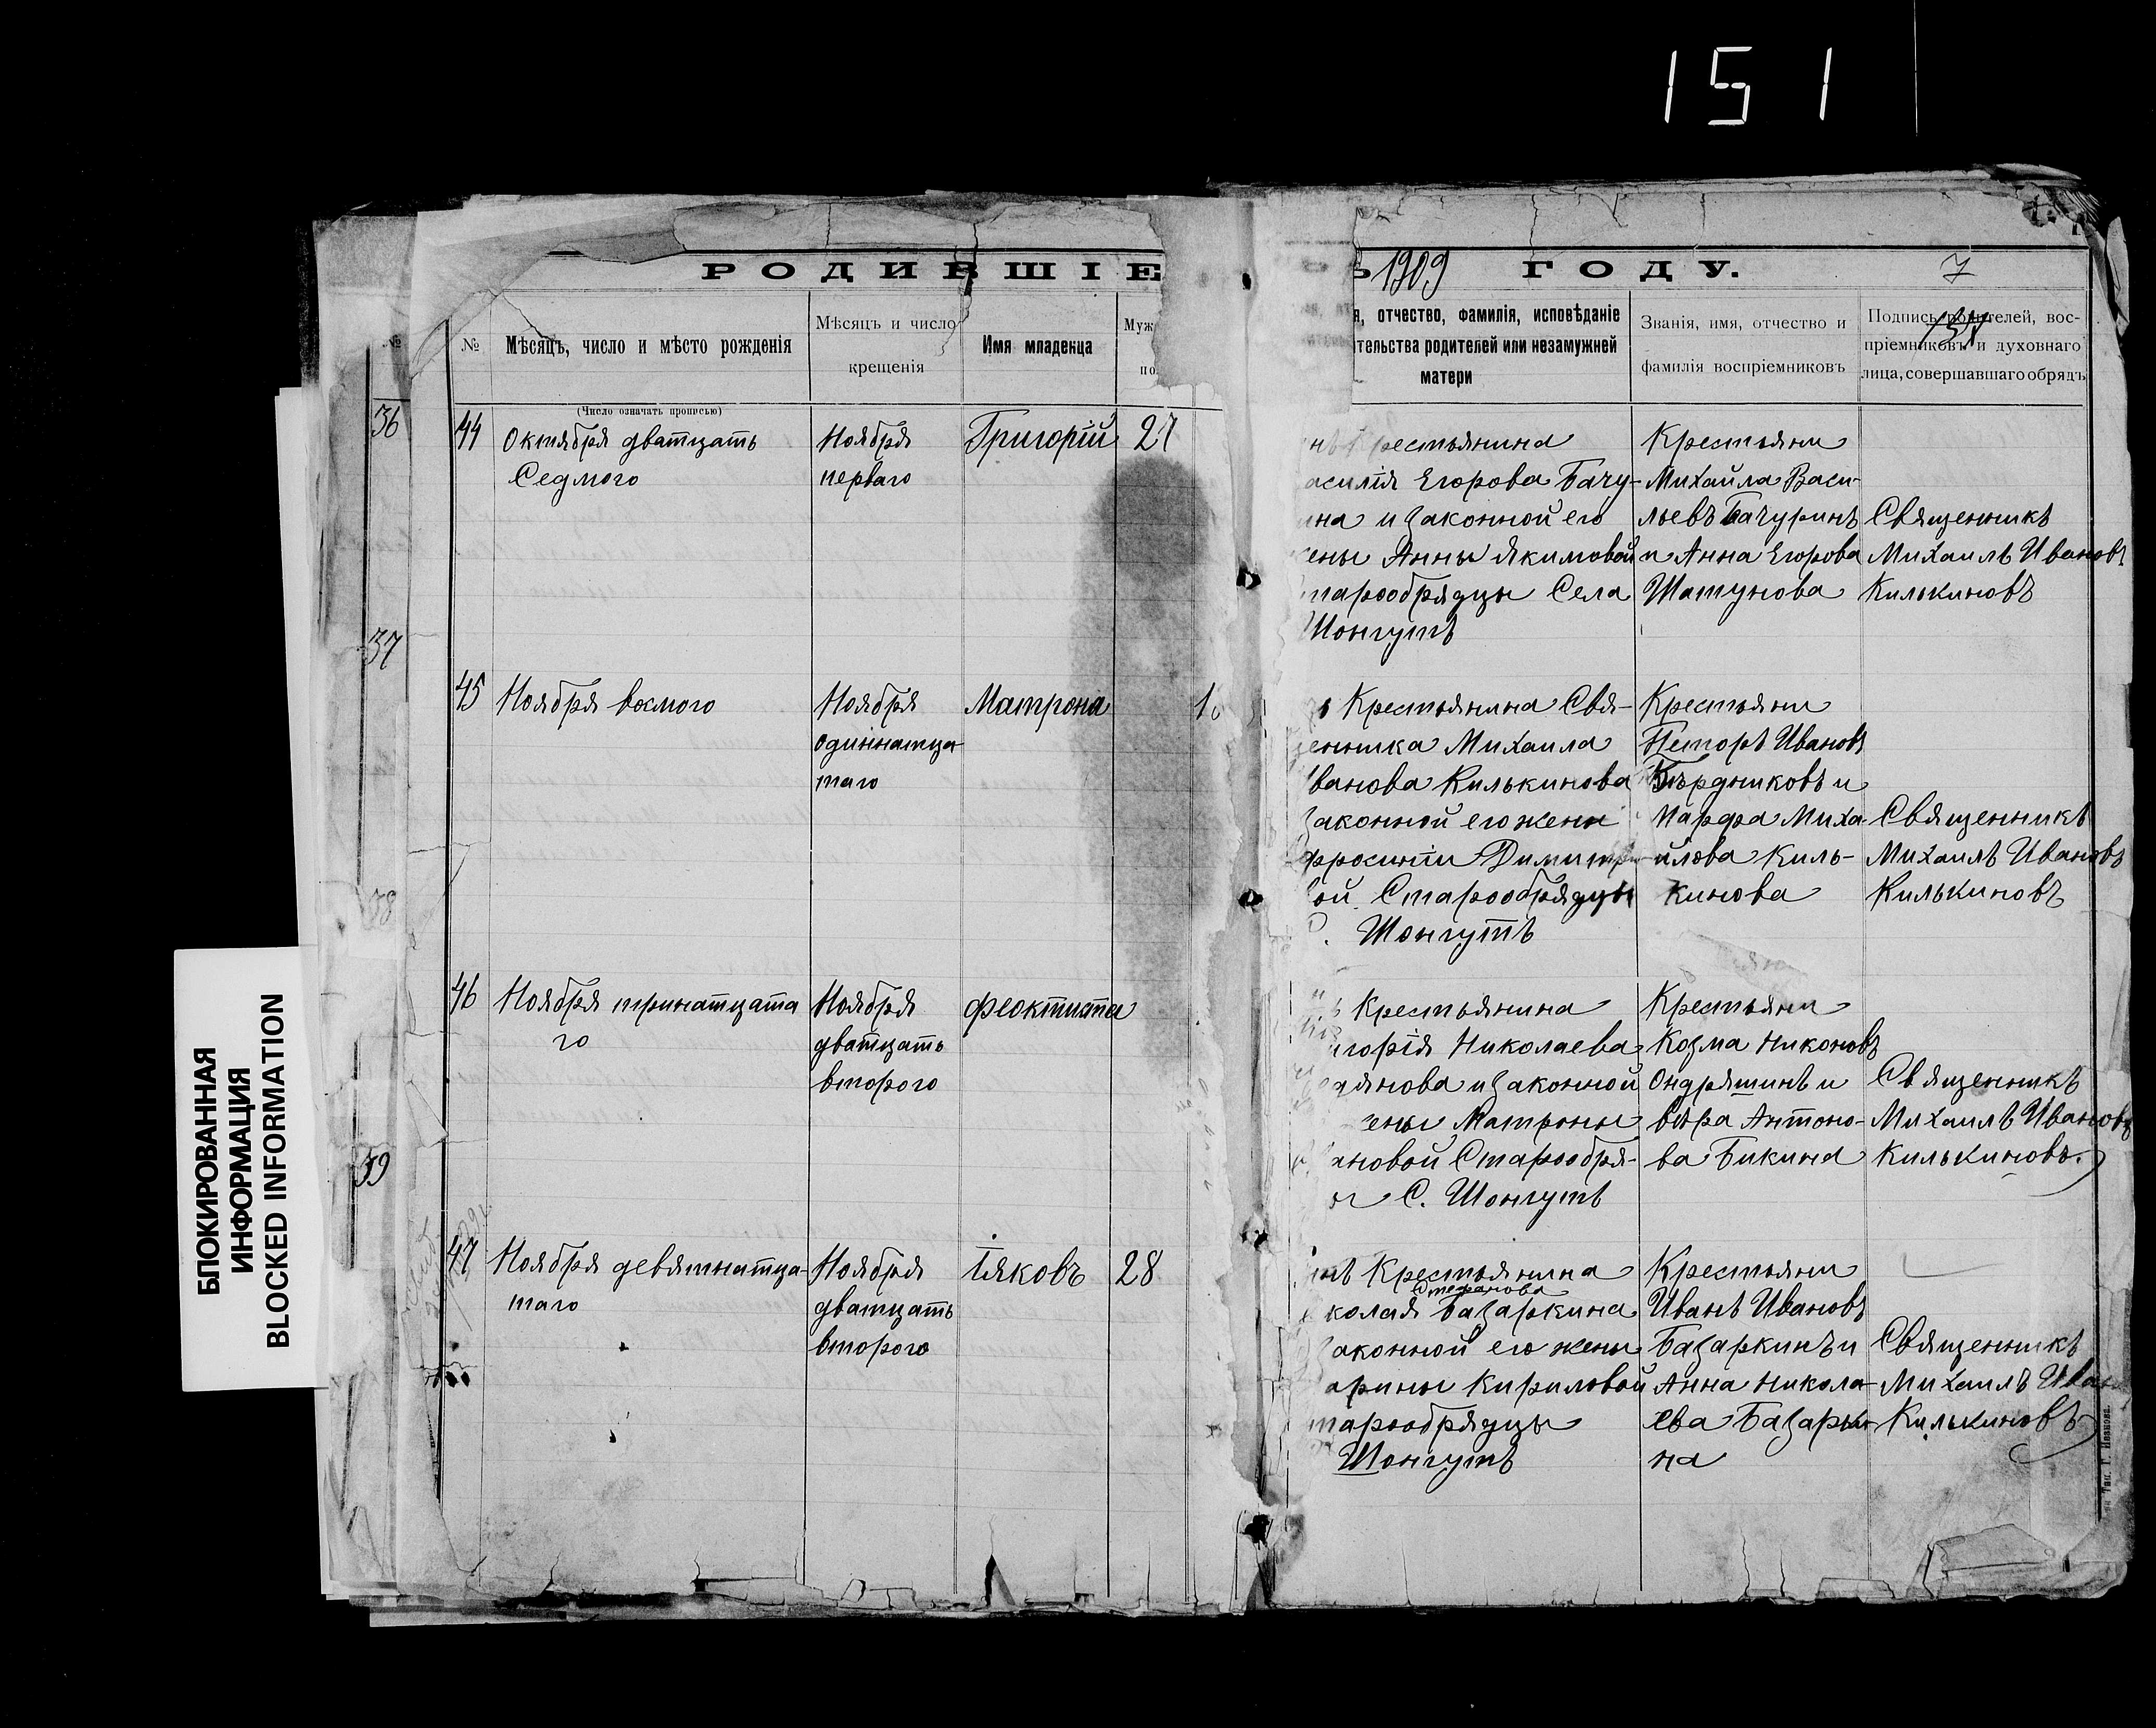 151
РОДИВШІЕ
Ъ 1909 ГОДУ. 7
№
№
Мѣсяцъ, число и мѣсто рожденія
Мѣсяцъ и число
крещенія
Имя младенца
Муж
по
я, отчество, фамилія, исповѣданіе
тельства родителей или незамужней
матери
Званія, имя, отчество и
фамилія воспріемниковъ
Подпись родителей, вос-
пріемниковъ и духовнаго
лица, совершавшаго обрядъ
(Число означать прописью)
36
37
38
39
44
Октября дватцать
Седмого
Ноября
перваго
Григорій
27
нъ Крестьянина
асилія Егорова Бачу-
ина и Законной его
ены Анны Якимовой
тарообрядцы Села
Шонгутъ
Крестьяни
Михайла Васи-
льевъ Бачуринъ
и Анна Егорова
Шатунова
Священникъ
Михаилъ Ивановъ
Килькиновъ
45
Ноября восмого
Ноября
одиннатца
таго
Матрона
Крестьянина Свя-
щенника Михаила
Иванова Килькинова
Законной его жены
фросиніи Димитрі
вой Старообрядцы
С. Шонгутъ
Крестьяни
Петоръ Ивановъ
Бѣрдниковъ и
Марфа Миха-
илова Киль-
кинова
Священникъ
Михаилъ Ивановъ
Килькиновъ
46
Ноября тринатцата
го
Ноября
дватцать
второго
Феоктиста
Крестьянина
игорія Николаева
дянова и Законной
ены Матроны
ановой Старообря-
С. Шонгутъ
Крестьяни
Козма Никоновъ
Ондряшинъ и
вѣра Антоно-
ва Бикина
Священникъ
Михаилъ Ивановъ
Килькиновъ.
47
Ноября девятнатца-
таго
Ноября
дватцать
второго
Іяковъ
28
нъ Крестьянина
Стефанова
колая Базаркина
Законной его жены
арины Кириловой
тарообрядцы
Шонгутъ
Крестьяни
Иванъ Ивановъ
Базаркинъ и
Анна Никола-
ева Базарки-
на
Священникъ
Михаилъ Иван
Килькиновъ
БЛОКИРОВАННАЯ
ИНФОРМАЦИЯ
BLOCKED INFORMATION